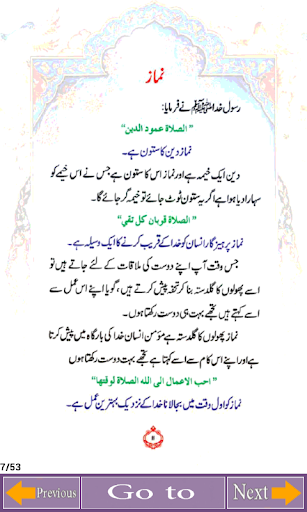 نماز
رسول خدا ﷺ نے فرمایا:
"الصلاة عمود الدین"
نماز دین کا ستون ہے۔
دین ایک خیمہ ہے اور نماز اس کا ستون ہے جس نے اس خیمے کو
سہارا دیا ہوا ہے اگر یہ ستون ٹوٹ جائے تو خیمہ گر جائے گا۔
"الصلاة قربان كل تقي"
نماز پرہیزگار انسان کو خدا کے قریب کرنے کا ایک وسیلہ ہے۔
جس وقت آپ اپنے دوست کی ملاقات کے لئے جاتے ہیں تو
اسے پھولوں کا گلدستہ بنا کر تحفہ پیش کرتے ہیں، گویا اپنے اس عمل سے
اسے کہتے ہیں تجھے بہت ہی دوست رکھتا ہوں۔
نماز پھولوں کا گلدستہ ہے مؤمن انسان خدا کی بارگاہ میں پیش کرتا
ہے اور اپنے اس کام سے اسے کہتا ہے تجھے بہت دوست رکھتا ہوں
"احب الاعمال الى الله الصلاة لوقتها"
نماز کو اول وقت میں بجا لانا خدا کے نزدیک بہترین عمل ہے۔
7/53
Previous
Go to
Next